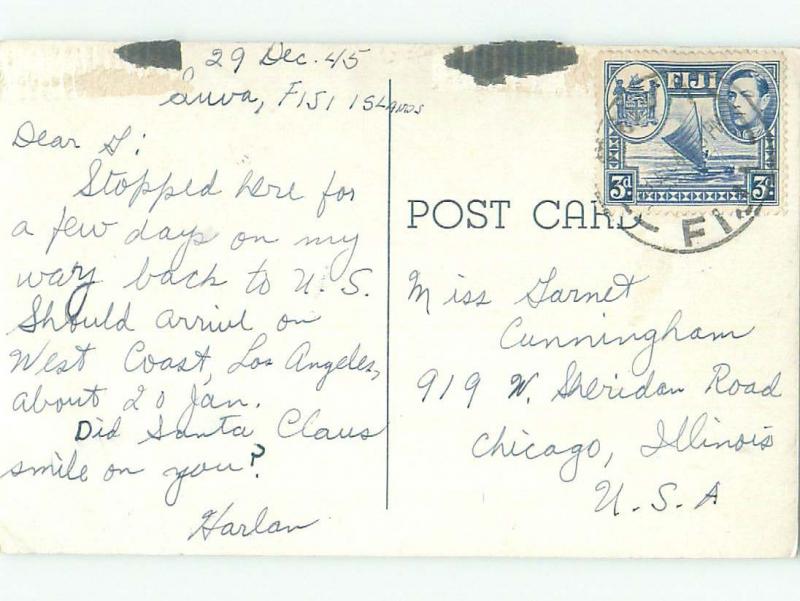 29 Dec. 45
Suva, FIJI ISLANDS
Dear G:
Stopped here for
a few days on my
way back to U.S.
Should arrive on
West Coast, Los Angeles,
about 20 Jan.
Did Santa Claus
smile on you?
Harlan
FIJI
3d
3d
FIJI
POST CARD
Miss Garnet
Cunningham
919 W. Sheridan Road
Chicago, Illinois
U.S.A